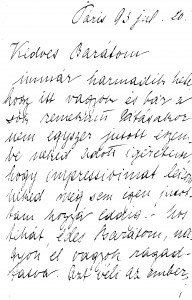 Páris 93 júl. 20.
Kedves Barátom
immár harmadik hete
hogy itt vagyok és bár a
sok remekmű látásakor
nem egyszer jutott eszem-
be neked adott igéretem,
hogy impressióimat leírom
neked még sem igen jutot-
tam hozzá eddig. - No
tehát, édes Barátom, na-
gyon el vagyok ragad-
tatva. Azt véli az ember,